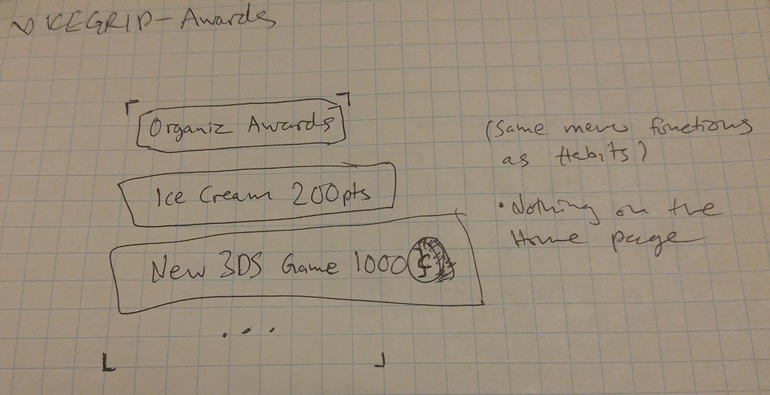 VICEGRIP - Awards
Organiz Awards
Ice Cream 200pts
New 3DS Game 1000
...
(Same menu functions
as Habits)
• Nothing on the
Home page